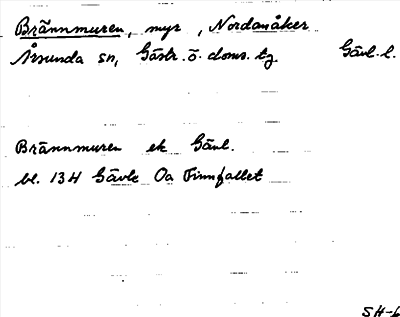 Brännmuren, myr, Nordanåker
Årsunda sn, Gästr. ö. doms. tg Gävl. l.
Brännmuren ek Gävl.
bl. 13H Gävle Oa Finnfallet